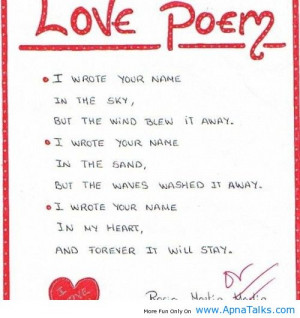 LOVE POEM
• I WROTE YOUR NAME
IN THE SKY,
BUT THE WIND BLEW IT AWAY.
• I WROTE YOUR NAME
IN THE SAND,
BUT THE WAVES WASHED IT AWAY.
• I WROTE YOUR NAME
IN MY HEART,
AND FOREVER IT WILL STAY.
I
More Fun Only On www.ApnaTalks.com